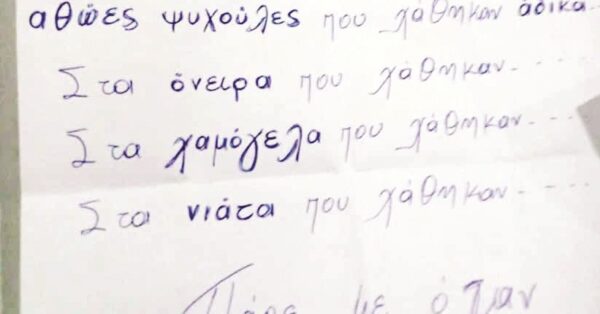 αθώες ψυχούλες που χάθηκαν άδικα..
Στα όνειρα που χάθηκαν.....
Στα χαμόγελα που χάθηκαν.....
Στα νιάτα που χάθηκαν.....
Πάρε με όταν